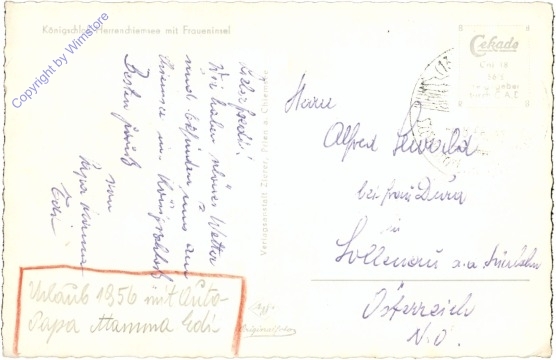 Königschloß Herrenchiemsee mit Fraueninsel
Copyright by Winstore
Lieber Fredi!
Wir haben schönes Wetter
und befinden uns am
Chiemsee im Königschloß.
Besten Gruß
von
Papa Mamma
Edi
Verlagsanstalt
Cekade
Herrn
Alfred Lewald
bei Frau
in
Sollenau a.a.
Österreich
N.Ö.
Urlaub 1956 mit Auto-
Papa Mamma Edi
Originalfoto